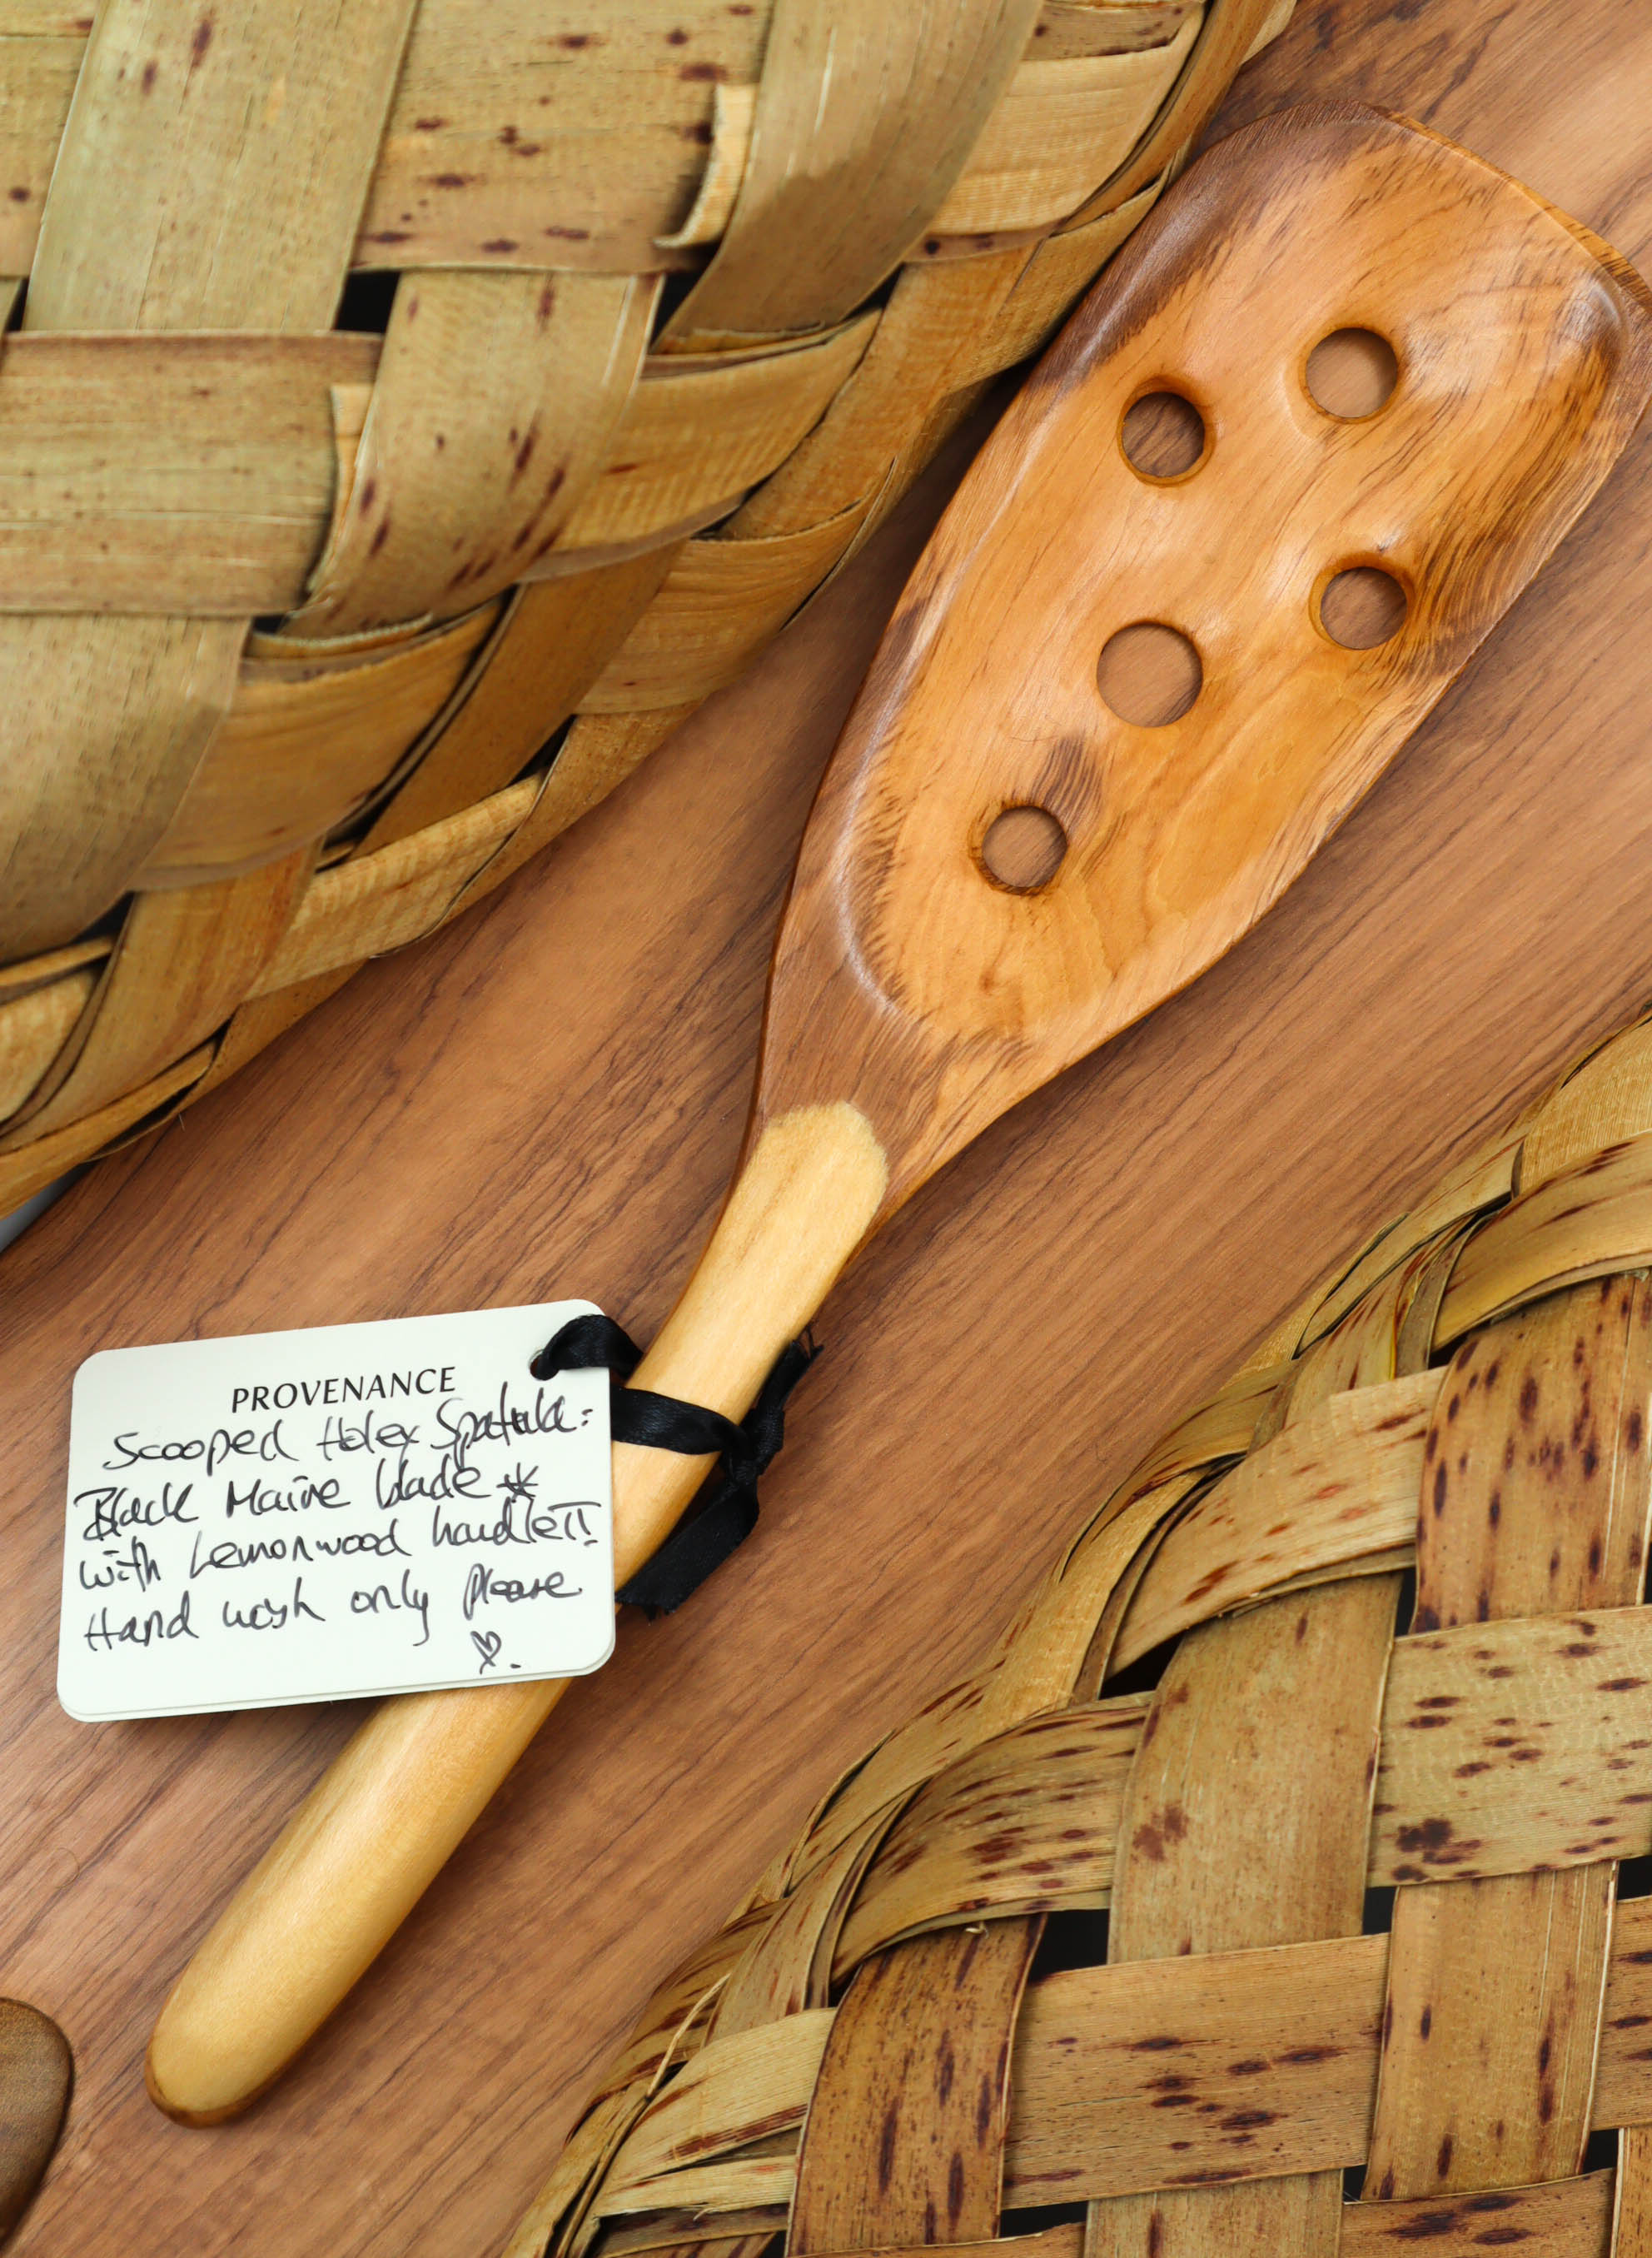 PROVENANCE
Scooped Holey Spatula:
Black Maire blade *
with Lemonwood handle!!
Hand wash only please